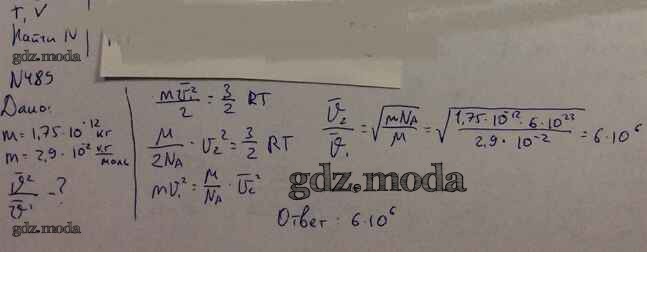 T, V
Найти N
gdz.moda
N485
Дано:
m = 1,75·10⁻¹² кг
m = 2,9·10⁻² кг/моль
v̄²/v̄¹ - ?
gdz.moda
mv̄₁²/2 = 3/2 RT
M/2Nₐ · v₂² = 3/2 RT
mv₁² = M/Nₐ · v̄₂²
v̄₂/v̄₁ = √(mNₐ/M) = √(1,75·10⁻¹²·6·10²³/2,9·10⁻²) = 6·10⁶
gdz.moda
Ответ: 6·10⁶